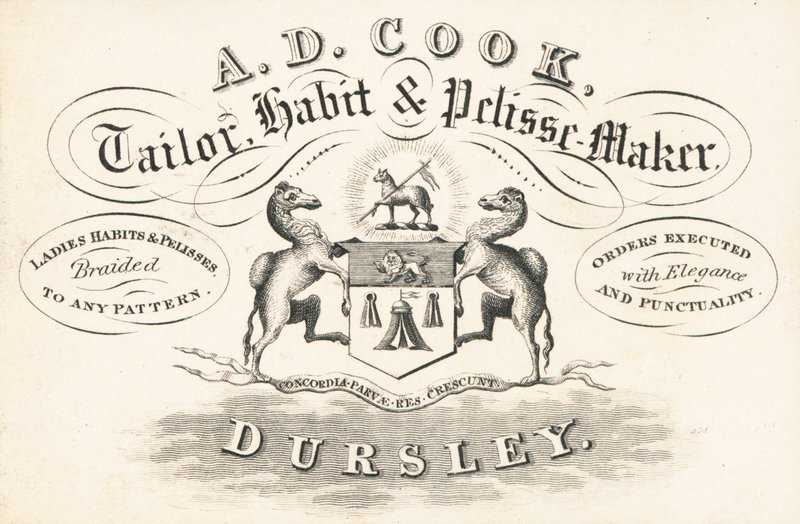 A. D. COOK,
Tailor, Habit & Pelisse-Maker.
LADIES HABITS & PELISSES.
Braided
TO ANY PATTERN.
ORDERS EXECUTED
with Elegance
AND PUNCTUALITY.
CONCORDIA · PARVÆ · RES · CRESCUNT
DURSLEY.